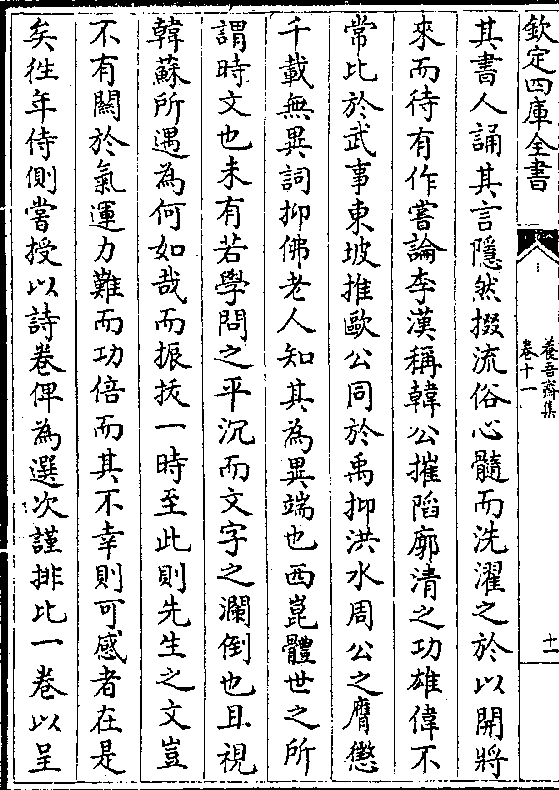 欽定四庫全書
養吾齋集
卷十一
十一
其書人誦其言隱然掇流俗心髓而洗濯之於以開將
來而待有作嘗論李漢稱韓公摧䧟廓清之功雄偉不
常比於武事東坡推歐公同於禹抑洪水周公之膺懲
千載無異詞抑佛老人知其為異端也西崑體世之所
謂時文也未有若學問之平沉而文字之瀾倒也且視
韓蘇所遇為何如哉而振拔一時至此則先生之文豈
不有闗於氣運力難而功倍而其不幸則可感者在是
矣徃年侍側嘗授以詩卷俾為選次謹排比一卷以呈